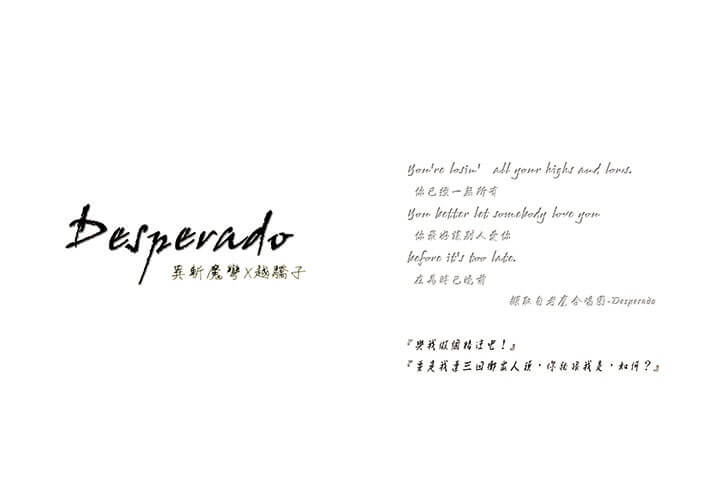 Desperado
異斬魔彎X越驕子
You're losin' all your highs and lows.
你已經一無所有
You better let somebody love you
你最好讓別人愛你
before it's too late.
在為時已晚前
擷取自老鷹合唱團-Desperado
『與我做個賭注吧！』
『要是我連三回衝出人頭，你就跟我走，如何？』